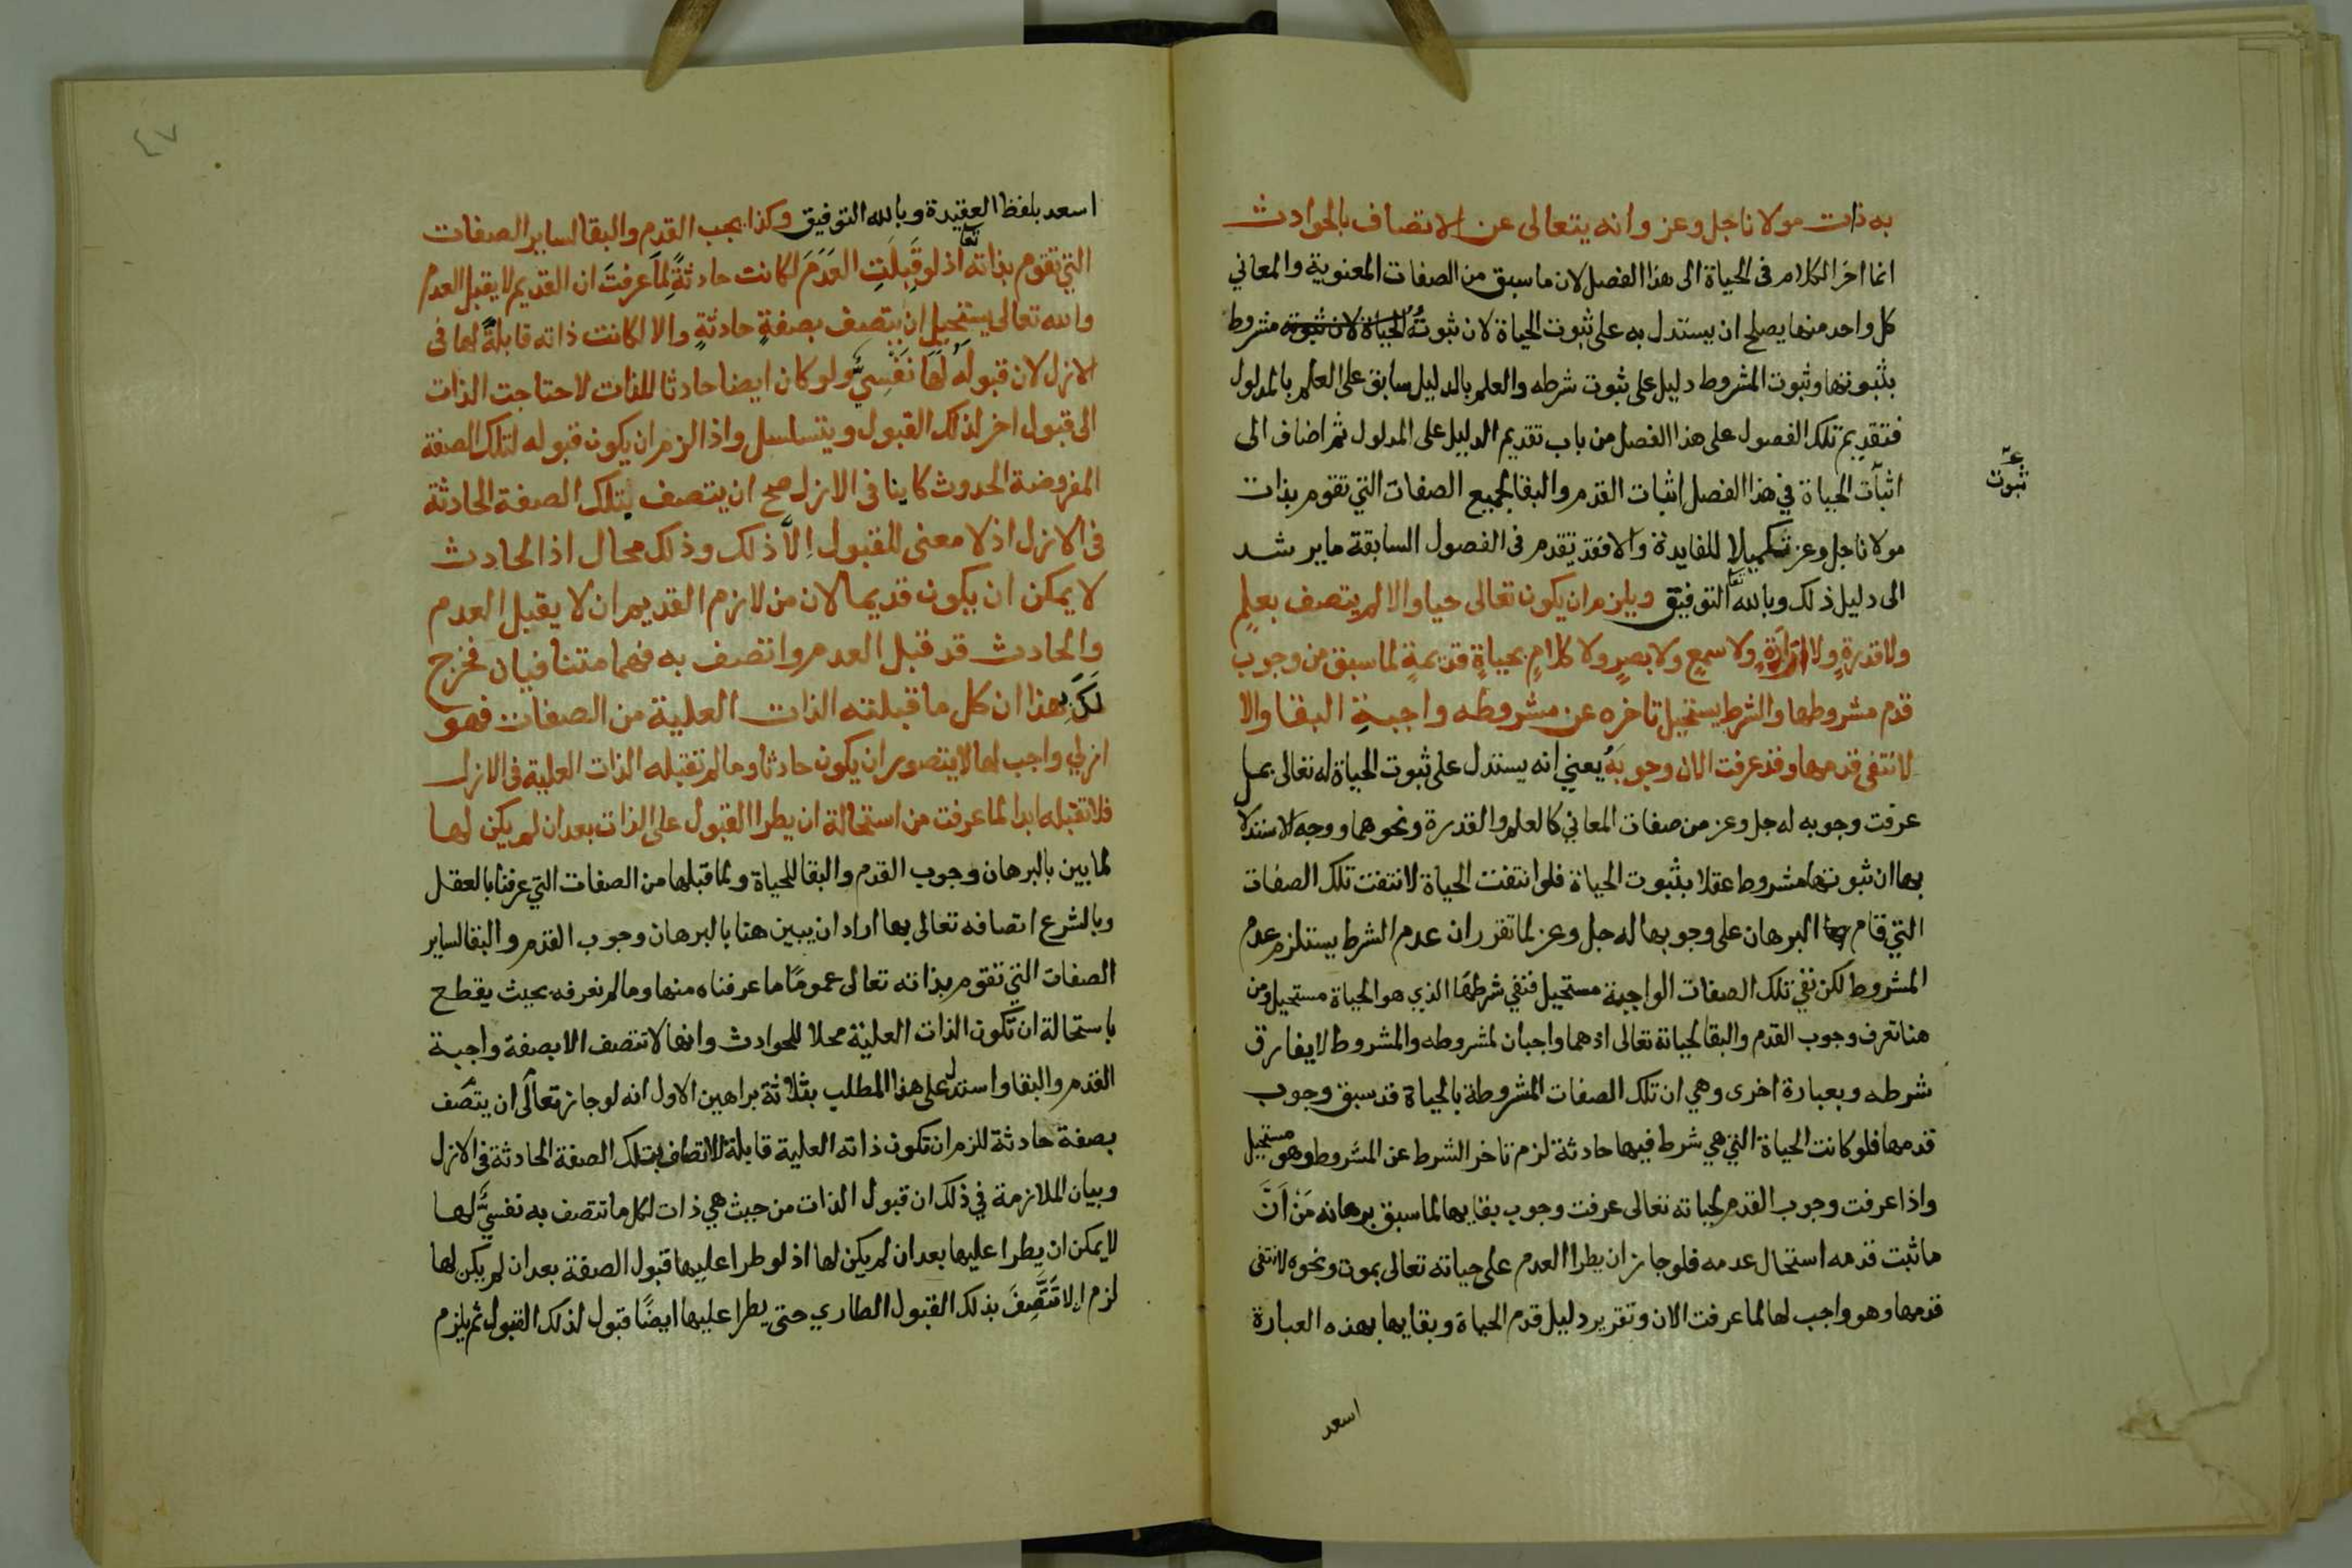 به ذات مولانا جل وعز وانه يتعالى عن الاتصاف بالحوادث
انما اخر الكلام فى الحياة الى هذا الفصل لان ما سبق من الصفات المعنوية والمعاني
كل واحد منها يصلح ان يستدل به على ثبوت الحياة لان ثبوتُهُ الحياة لان ثبوته مشروط
بثبوتها وثبوت المشروط دليل على ثبوت شرطه والعلم بالدليل سابق على العلم بالمدلول
فتقديم تلك الفصول على هذا الفصل من باب تقديم الدليل على المدلول ثم اضاف الى
اثبات الحياة في هذا الفصل اثبات القدم والبقا لجميع الصفات التي تقوم بذات
ثبوت
مولانا جل وعز تكميلا للفايدة والا فقد تقدم فى الفصول السابقة ما يرشد
الى دليل ذلك وبالله تعا التوفيق ويلزم ان يكون تعالى حيا والا لم يتصف بعلمٍ
ولا قدرةٍ ولا ارادةٍ ولا سمعٍ ولا بصرٍ ولا كلامٍ بحياةٍ قديمةٍ لما سبق من وجوب
قدم مشروطها والشرط يستحيل تاخره عن مشروطه واجبةِ البقا والا
لانتفى قدمها وقد عرفت الان وجوبَهُ يعني انه يستدل على ثبوت الحياة له تعالى بما
عرفت وجوبه له جل وعز من صفات المعاني كالعلم والقدرة ونحوهما ووجه الاستدلا
بها ان ثبوتها مشروط عقلا بثبوت الحياة فلو انتفت الحياة لانتفت تلك الصفات
التي قام البرهان على وجوبها له جل وعز لما تقرر ان عدم الشرط يستلزم عدم
المشروط لكن نفي تلك الصفات الواجبة مستحيل فنفي شرطها الذي هو الحياة مستحيل ومن
هنا تعرف وجوب القدم والبقا لحياته تعالى اذهما واجبان لمشروطه والمشروط لا يفارق
شرطه وبعبارة اخرى وهي ان تلك الصفات المشروطة بالحياة قد سبق وجوب
قدمها فلو كانت الحياة التي هي شرط فيها حادثة لزم تاخر الشرط عن المشروط وهو مستحيل
واذا عرفت وجوب القدم لحياته تعالى عرفت وجوب بقايها لما سبق برهانه مَنْ اَنَّ
ما ثبت قدمه استحال عدمه فلو جاز ان يطرا العدم على حياته تعالى بموت ونحوه لانتفى
قدمها وهو واجب لها لما عرفت الان وتقرير دليل قدم الحياة وبقايها بهذه العبارة
اسعد
٤٧
اسعد بلفظ العقيدة وبالله التوفيق وكذا يجب القدم والبقا لساير الصفات
التي تقوم بذاته تعا اذ لو قَبِلَتِ العَدَمَ لكانت حادثةً لِمَا عرفتَ ان القديم لا يقبل العدم
والله تعالى يستحيل ان يتصف بصفةٍ حادثةٍ والا لكانت ذاته قابلةً لها فى
الازل لان قبولَهُ لَهَا نَفْسِيٌّ ولو كان ايضا حادثا للذات لاحتاجت الذات
الى قبول اخر لذلك القبول ويتسلسل واذا لزم ان يكون قبوله لتلك الصفة
المفروضة الحدوث كاينا فى الازل صح ان يتصف بتلك الصفة الحادثة
فى الازل اذ لا معنى للقبول اِلاَّ ذلك وذلك محال اذ الحادث
لا يمكن ان يكون قديما لان من لازم القديم ان لا يقبل العدم
والحادث قد قبل العدم واتصف به فهما متنافيان فخرج
لَكَ بهذا ان كل ما قبلته الذات العلية من الصفات فهو
ازلي واجب لها لا يتصور ان يكون حادثا وما لم تقبله الذات العلية فى الازل
فلا تقبله ابدا لما عرفت من استحالة ان يطرا القبول على الذات بعد ان لم يكن لها
لما بين بالبرهان وجوب القدم والبقا للحياة ولما قبلها من الصفات التي عرفنا بالعقل
وبالشرع اتصافه تعالى بها اراد ان يبين هنا بالبرهان وجوب القدم والبقا لساير
الصفات التي تقوم بذاته تعالى عمومًا ما عرفناه منها وما لم نعرفه بحيث يقطح
باستحالة ان تكون الذات العلية محلا للحوادث وانها لا تتصف الا بصفة واجبة
القدم والبقا واستدل على هذا المطلب بثلاثة براهين الاول انه لو جاز تعالى ان يتصف
بصفة حادثة للزم ان تكون ذاته العلية قابلة للاتصاف بتلك الصفة الحادثة فى الازل
وبيان الملازمة في ذلك ان قبول الذات من حيث هي ذات لكل ما تتصف به نفسيٌّ لها
لا يمكن ان يطرا عليها بعد ان لم يكن لها اذ لو طرا عليها قبول الصفة بعد ان لم يكن لها
لزم الا تَتَّصِفَ بذلك القبول الطاري حتى يطرا عليها ايضًا قبول لذلك القبول ثم يلزم